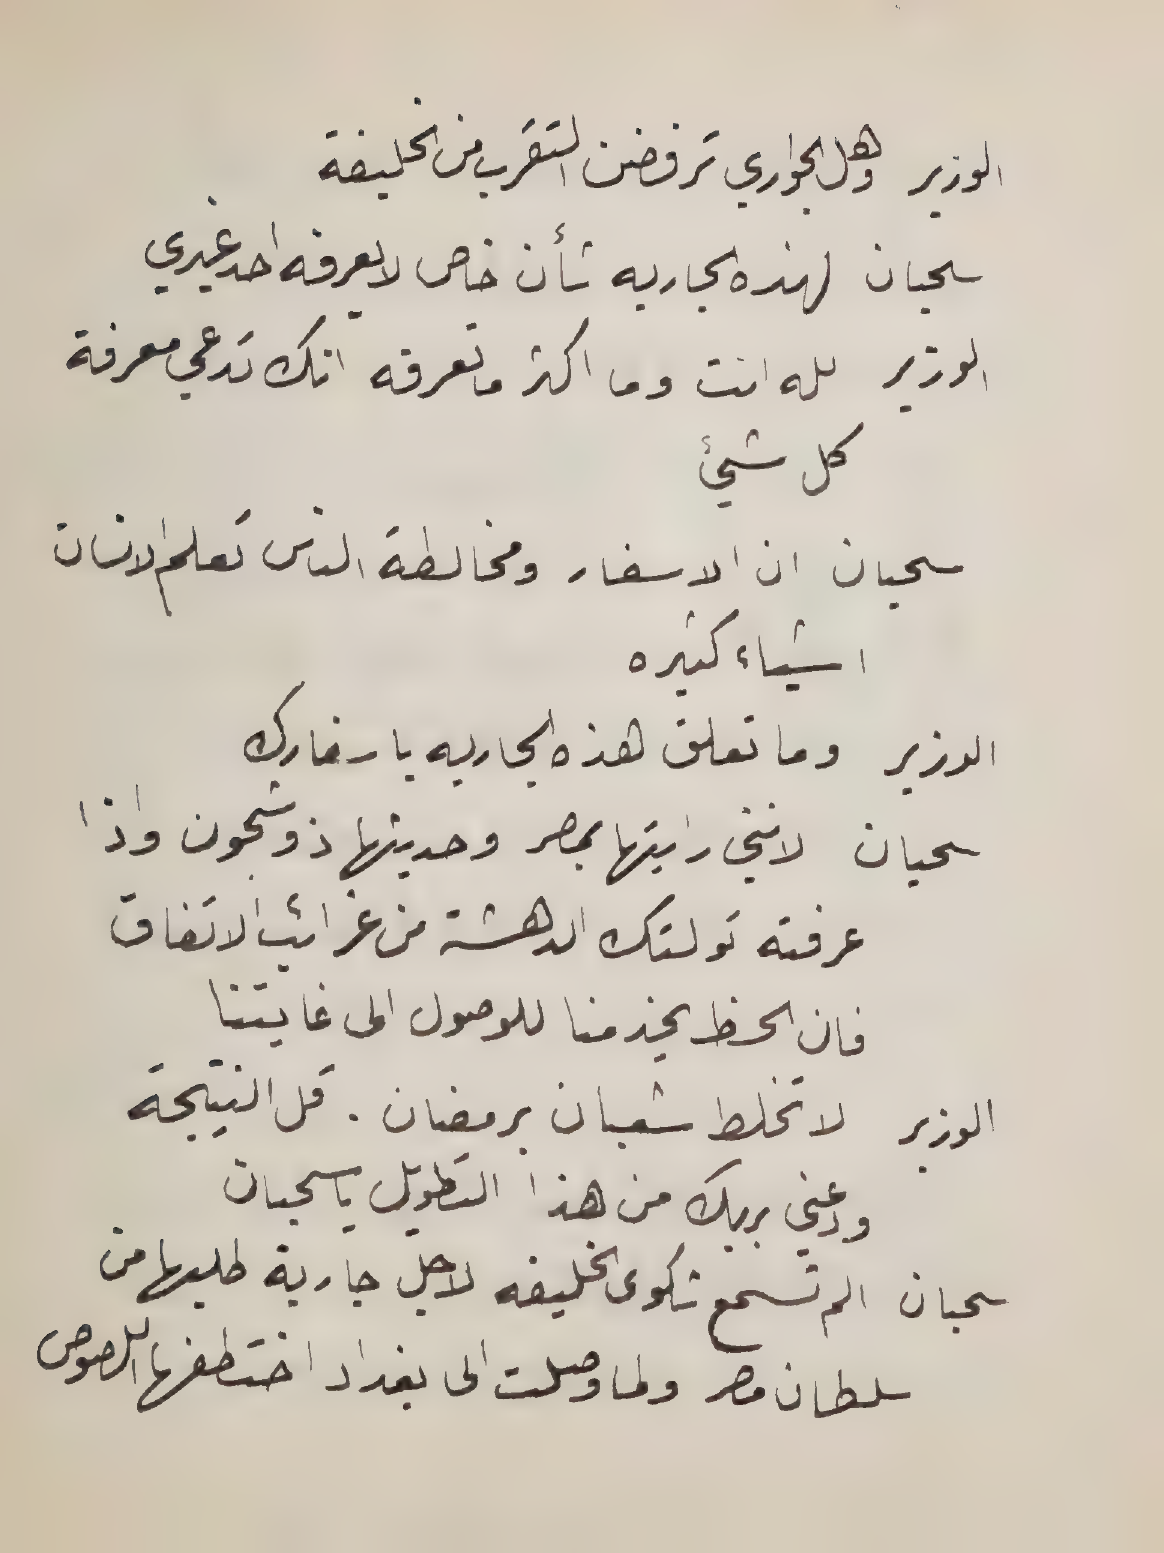 الوزير وهل الجواري ترفضن التقرب من الخليفة
سحبان لهذه الجاريه شأن خاص لا يعرفه احد غيري
الوزير لله انت وما اكثر ما تعرفه انك تدعي معرفة
كل شيئ
سحبان ان الاسفار ومخالطة الناس تعلم الانسان
اشياء كثيره
الوزير وما تعلق هذه الجاريه باسفارك
سحبان لانني رايتها بمصر وحديثها ذو شجون واذا
عرفته تولتك الدهشة من غرائب الاتفاق
فان الحظ يخدمنا للوصول الى غايتنا
الوزير لا تخلط شعبان برمضان . قل النتيجة
ودعني بربك من هذا التطويل يا سحبان
سحبان الم تسمع شكوى الخليفه لاجل جارية طلبها من
سلطان مصر ولما وصلت الى بغداد اختطفها اللصوص